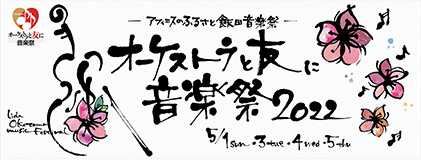 オーケストラと友に
音楽祭
— アフィニスのふるさと飯田音楽祭 —
オーケストラと友に
音楽祭 2022
5/1sun・3tue・4wed・5thu
Iida
Orchestra
music Festival